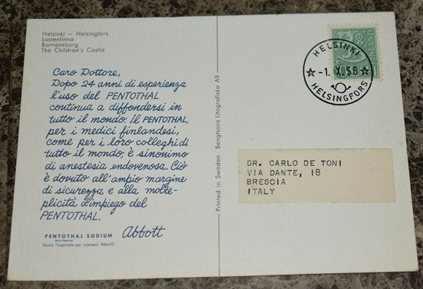 Helsinki - Helsingfors
Lastenlinna
Barnensborg
The Children's Castle
Caro Dottore,
Dopo 24 anni di esperienza
l'uso del PENTOTHAL
continua a diffondersi in
tutto il mondo. Il PENTOTHAL,
per i medici finlandesi,
come per i loro colleghi di
tutto il mondo, è sinonimo
di anestesia endovenosa. Ciò
è dovuto all'ampio margine
di sicurezza e alla molte-
plicità d'impiego del
PENTOTHAL.
PENTOTHAL SODIUM
Abbott
Printed in Sweden Bengtsons Litografiska AB
HELSINKI
-1. X. 58
HELSINGFORS
DR. CARLO DE TONI
VIA DANTE, 18
BRESCIA
ITALY